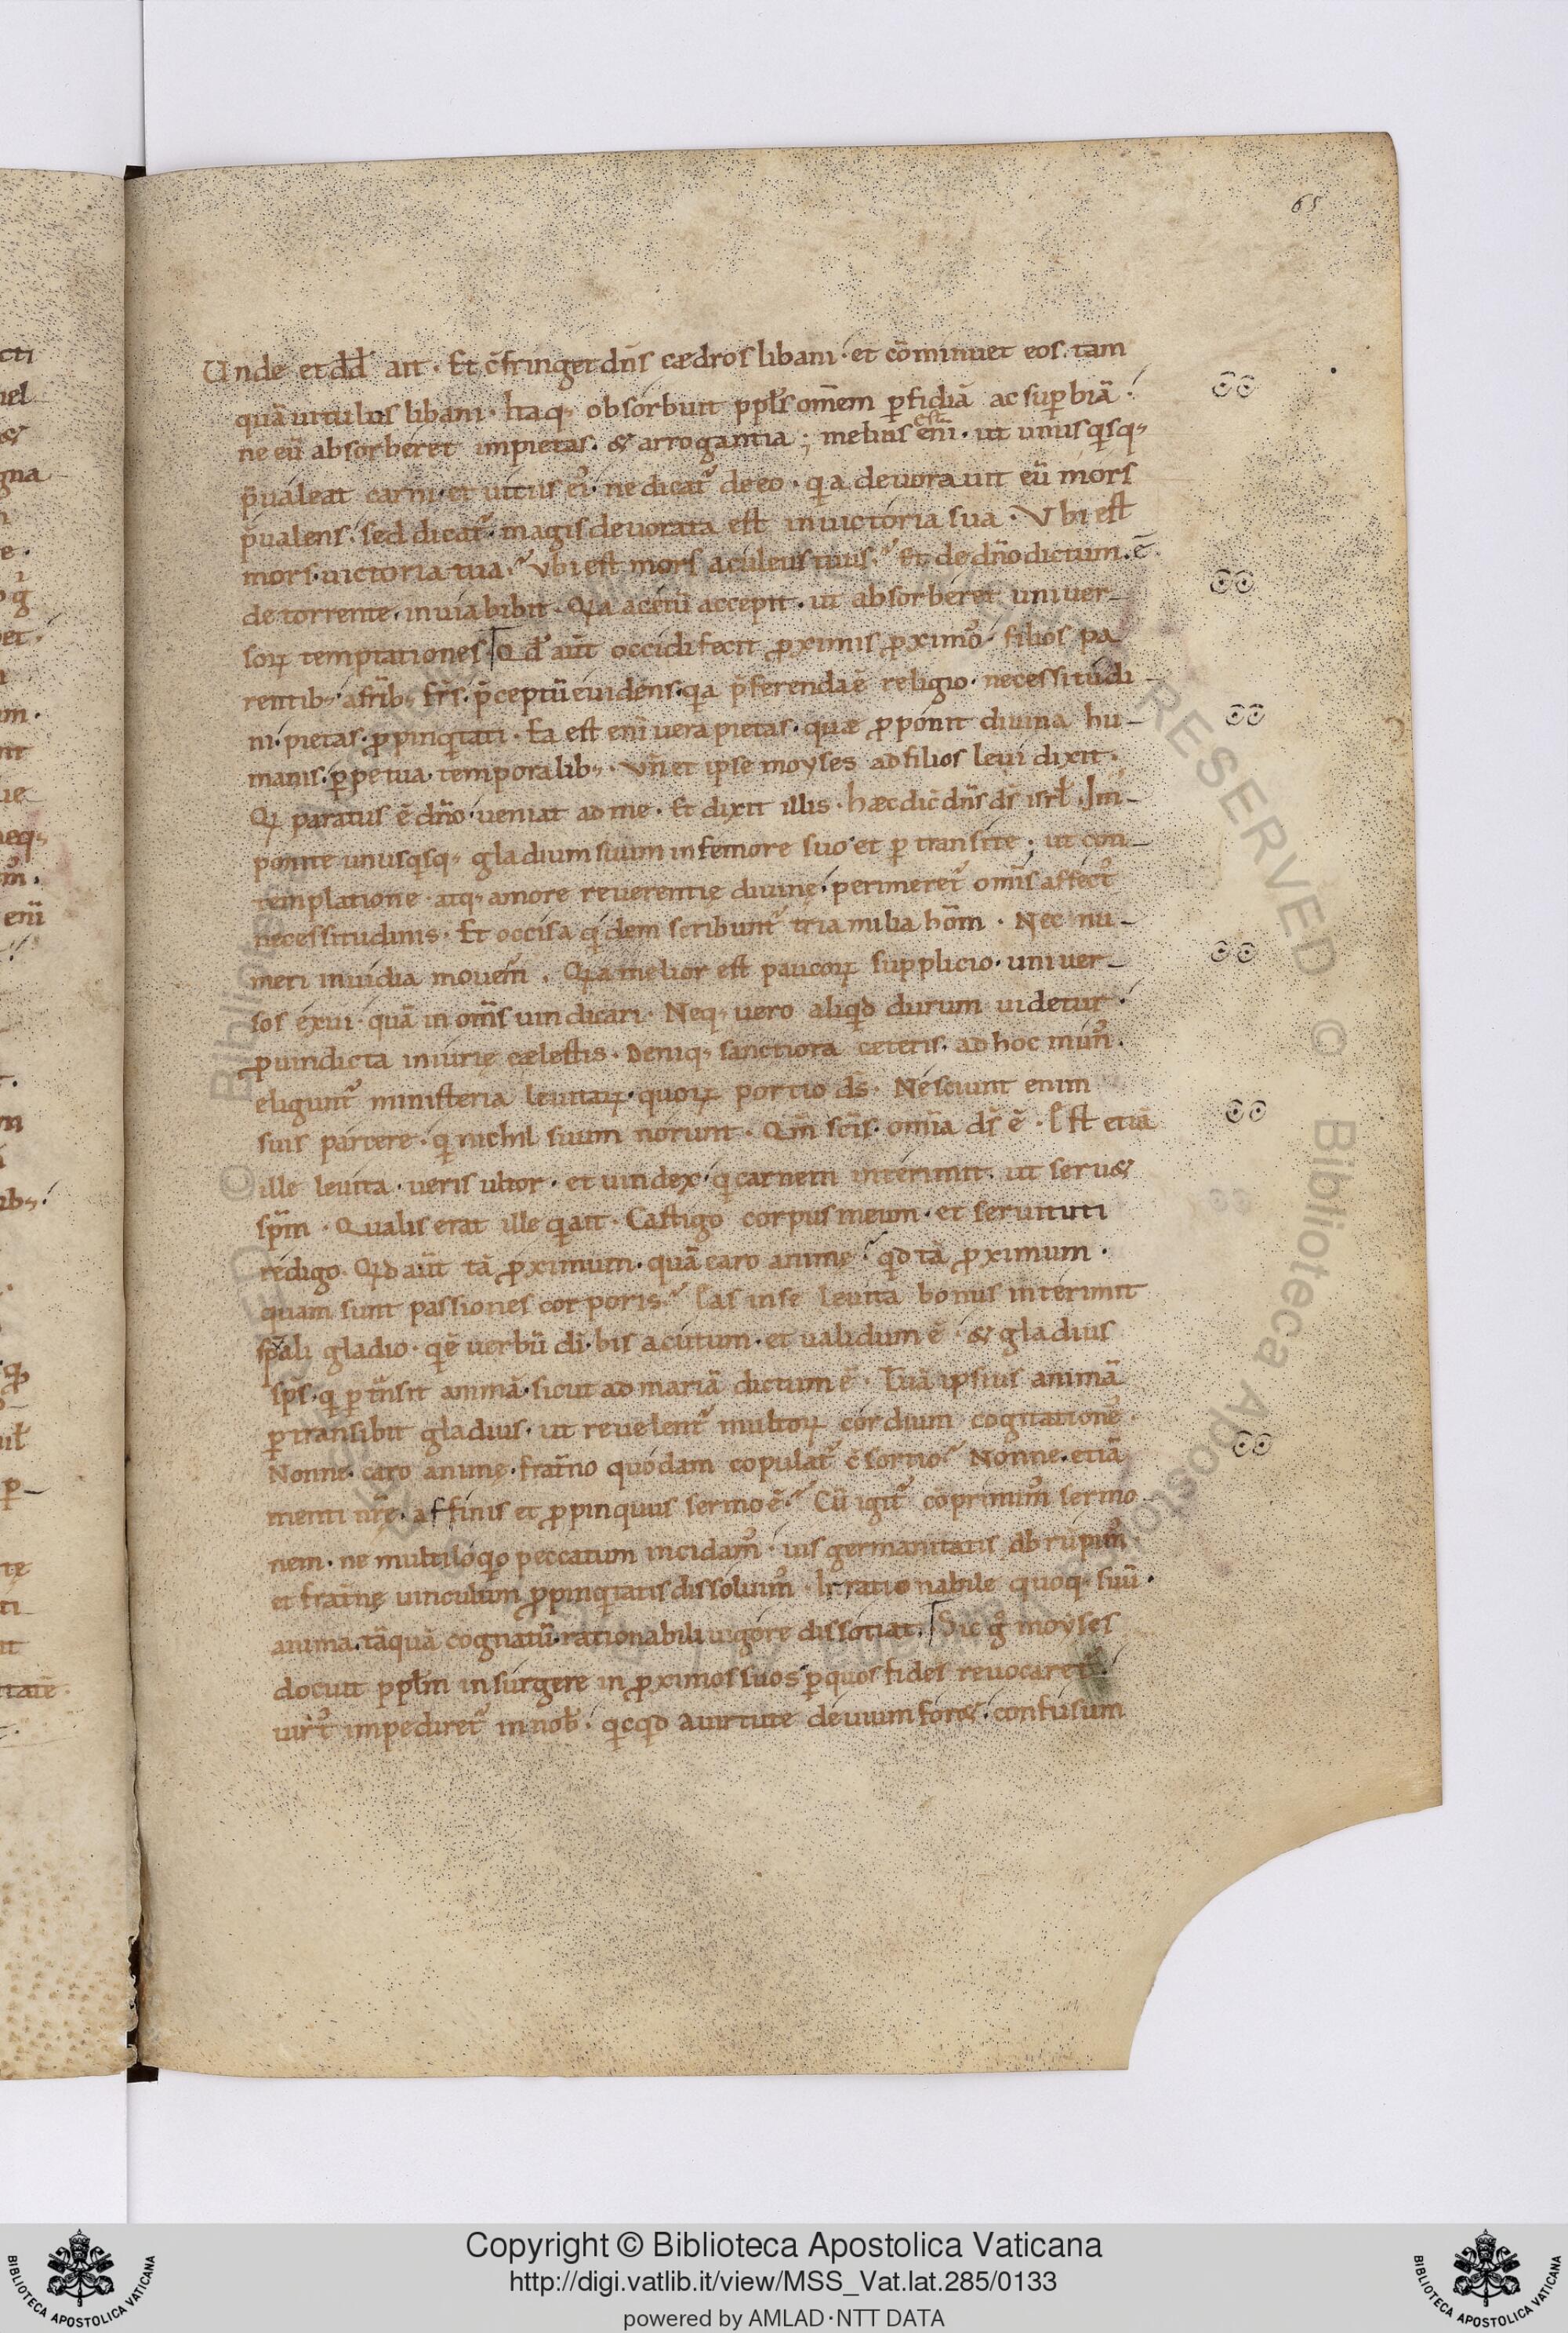 65
Unde et dd̄ ait · Et c̄fringet dn̄s cædros libani · et cōminuet eos tam
quā uitulus libani · Itaq; obsorbuit ppl̄s om̄em ꝑfidiā ac suꝑbiā ·
ne eū absorberet impietas · & arrogantia ; melius est eni̅ · ut unusqsq;
p̄ualeat carni · et uitiis ei᾽ · ne dicat᷑ de eo · qa deuorauit eū mors
p̄ualens · sed dicat᷑ magis deuorata est in uictoria sua · Ubi est
mors uictoria tua · Ubi est mors aculeus tuus · Et de dn̄o dictum · ē
de torrente · in uia bibit · Qa acetū accepit · ut absorberet uniuer-
soꝝ temptationes Qd̄ aūt occidi fecit ꝓximis ꝓximo᾽ · filios pa
rentib; a fr̄ib; fr̄s · p̄ceptū euidens · qa p̄ferenda ē religio · necessitudi-
ni · pietas · ꝓpinqtati · Ea est eni̅ uera pietas · quæ p̄ponit diuina hu-
manis · ꝑpetua · temporalib; · Un̄ et ipse moyses ad filios leui dixit ·
Q paratus ē dn̄o · ueniat ad me · Et dixit illis · hæc dic̄ dn̄s ds̄ isrl̄ · Im-
ponite unusqsq; gladium suum in femore suo et ꝑtransite ; ut con-
templatione · atq; amore reuerentie diuinę · perimeret᷑ omīs affect᾽
necessitudinis · Et occisa qdem scribunt᷑ tria milia hom̄ · Nec nu-
meri inuidia mouem̄ · Qa melior est paucoꝝ supplicio · uniuer-
sos exui · quā in om̄s uindicari · Neq; uero aliqd durum uidetur ·
ꝓ uindicta iniurie cælestis · Deniq; sanctiora cæteris · ad hoc mun᾽ ·
eligunt᷑ ministeria leuitaꝝ · quoꝝ portio ds̄ · Nesciunt enim
suis parcere · q nichil suum norunt · Qm̄ scīs · omnīa ds̄ ē · Est etiā
ille leuita · ueris ultor · et uindex · q carnem interimit · ut seru&
spm̄ · Qualis erat ille q ait · Castigo corpus meum · et seruituti
redigo · Qd aūt tā ꝓximum · quā caro animę · qd tā ꝓximum ·
quam sunt passiones corporis · Has in se leuita bonus interimit
sp̄ali gladio · q ē uerbū di̅ · bis acutum · et ualidum ē · & gladius
sp̄s · q ꝑtn̄sit animā · sicut ad mariā dictum ē · Tuā ipsius animā
ꝑtransibit gladius · ut reuelent᷑ multoꝝ cordium cogitatione᾽ ·
Nonne · caro animę · frat̄no quodam copulat᷑ c̄sortio · Nonne · etiā
menti nr̄ę · affinis et ꝓpinquus sermo ē · Cū igit᷑ cōprimim᾽ sermo
nem · ne multiloqo peccatum incidam᾽ · uis germanitatis abrupim᾽
et frat̄nę uinculum ꝓpinqtatis dissoluim᾽ · Irrationabile quoq; suū ·
anima · tāquā cognatū · rationabili uigore dissotiat · Sic g᾽ moyses
docuit ppl̄m insurgere in ꝓximos suos ꝑ quos fides reuocaret ·
uirt᾽ impediret᷑ in nob̄ · qcqd a uirtute deuium for& · confusum
Copyright © Biblioteca Apostolica Vaticana
http://digi.vatlib.it/view/MSS_Vat.lat.285/0133
powered by AMLAD·NTT DATA